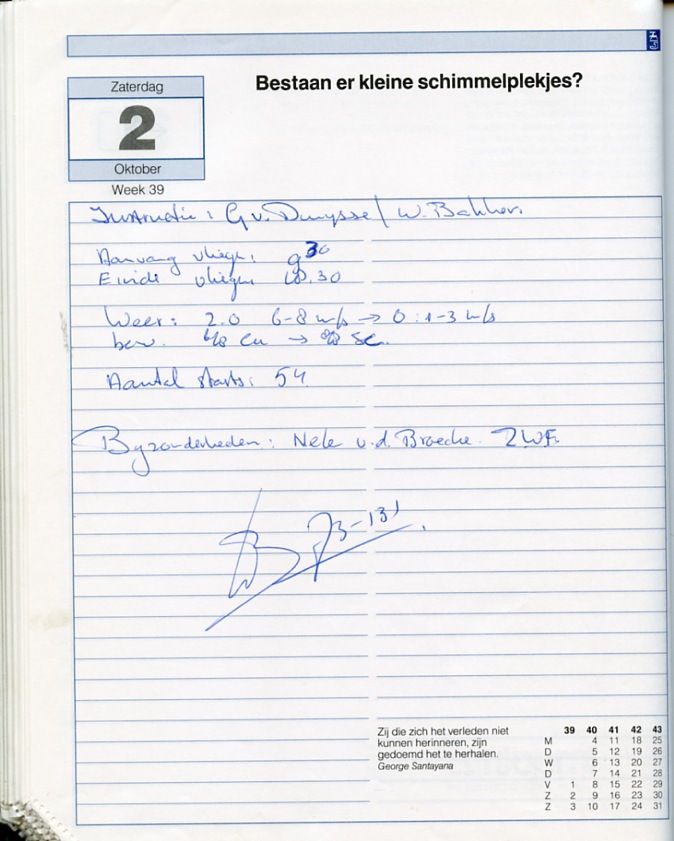 Bestaan er kleine schimmelplekjes?
Zaterdag
2
Oktober
Week 39
Instructie: G v. Duuysse / W. Bakker.
Aanvang vliegen: 9 30
Einde vliegen 18.30
Weer: 2.0 6-8 m/s → 0:1-3 m/s
bew. 6/8 Cu → 8/8 Sc.
Aantal starts: 54
Byzonderheden: Nele v.d. Broecke ZWF.
73-131
Zij die zich het verleden niet
kunnen herinneren, zijn
gedoemd het te herhalen.
George Santayana
39 40 41 42 43
M 4 11 18 25
D 5 12 19 26
W 6 13 20 27
D 7 14 21 28
V 1 8 15 22 29
Z 2 9 16 23 30
Z 3 10 17 24 31